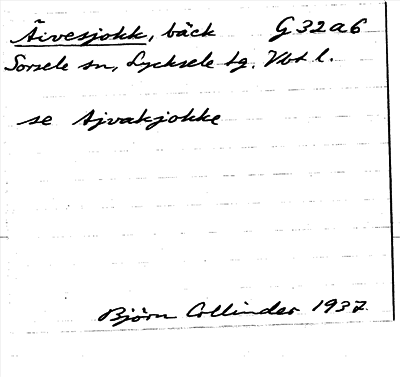 Äivesjokk, bäck G 32 a 6
Sorsele sn, Lycksele tg. Vbt l.
se Ajvakjokke
Björn Collinder 1937.